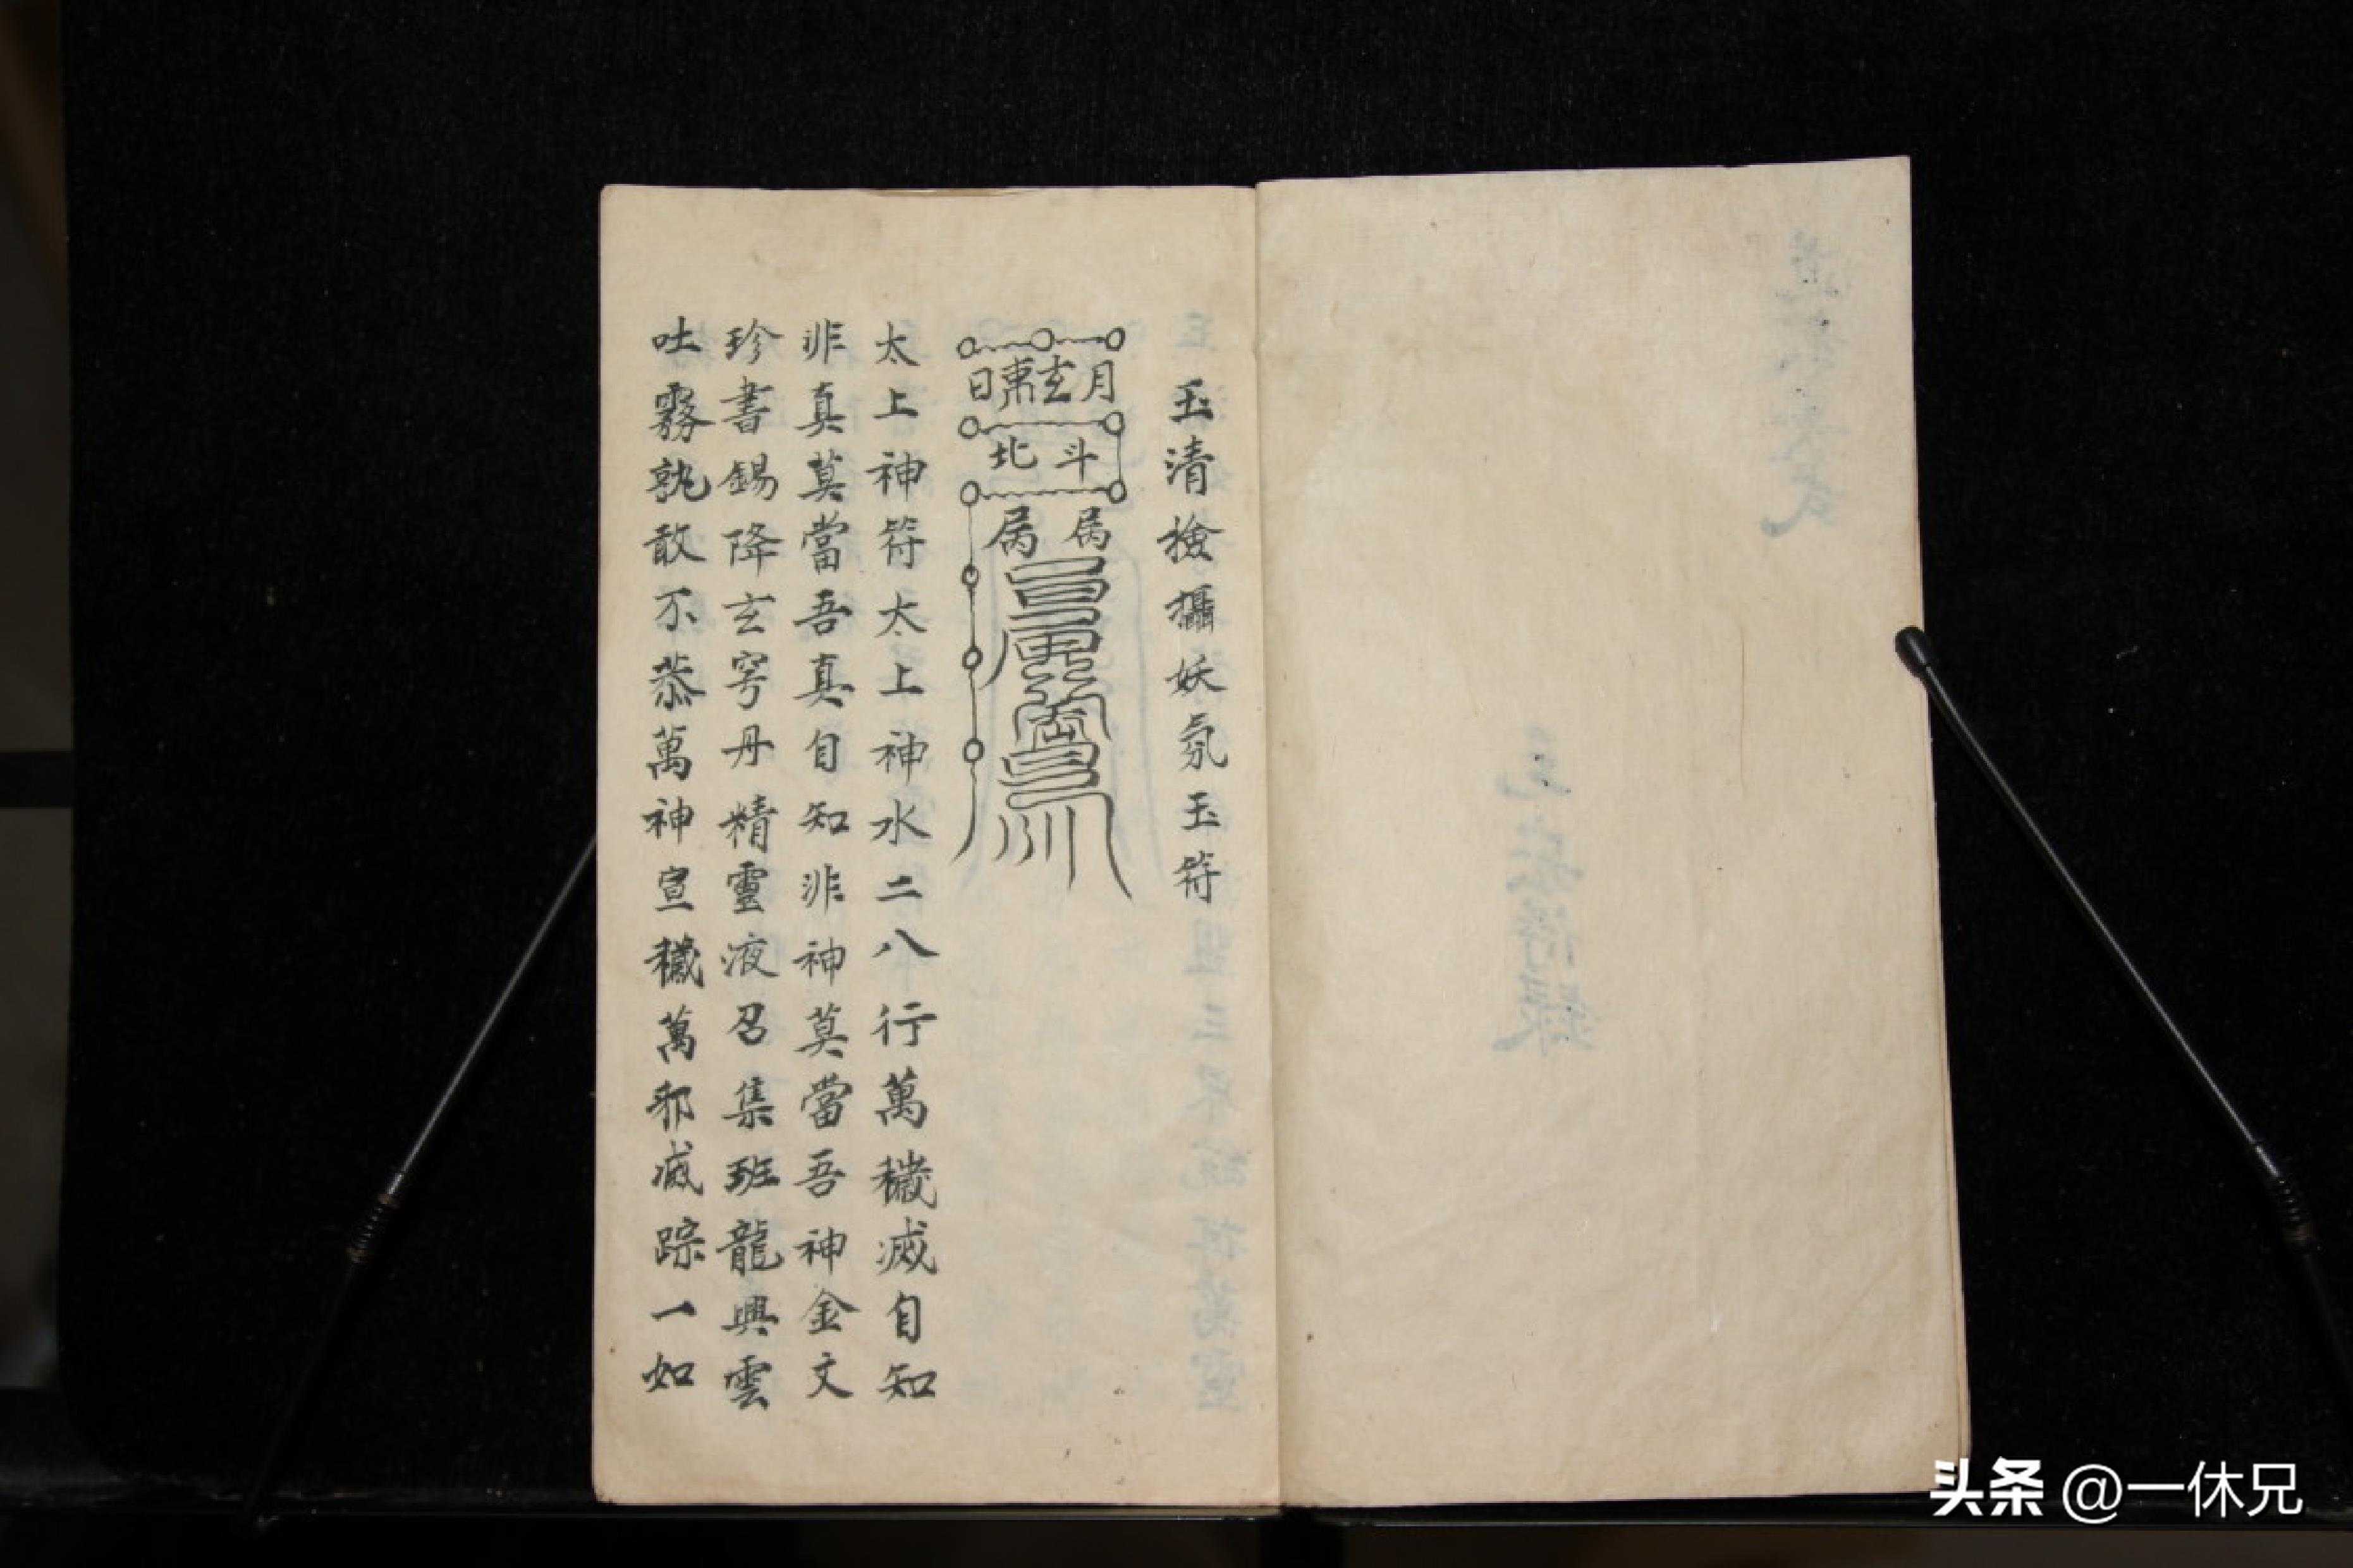 玉清撿攝妖氛玉符
月玄東日
斗北
太上神符太上神水二八行萬穢滅自知
非真莫當吾真自知非神莫當吾神金文
珍書錫降玄穹丹精靈液召集班龍興雲
吐霧孰敢不恭萬神宣穢萬邪滅踪一如
头条 @一休兄